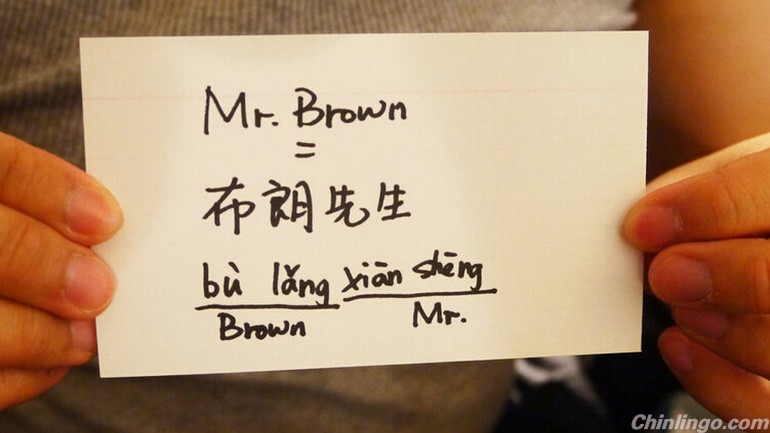 Mr. Brown
=
布朗先生
bù lǎng xiān shēng
Brown Mr.
Chinlingo.com